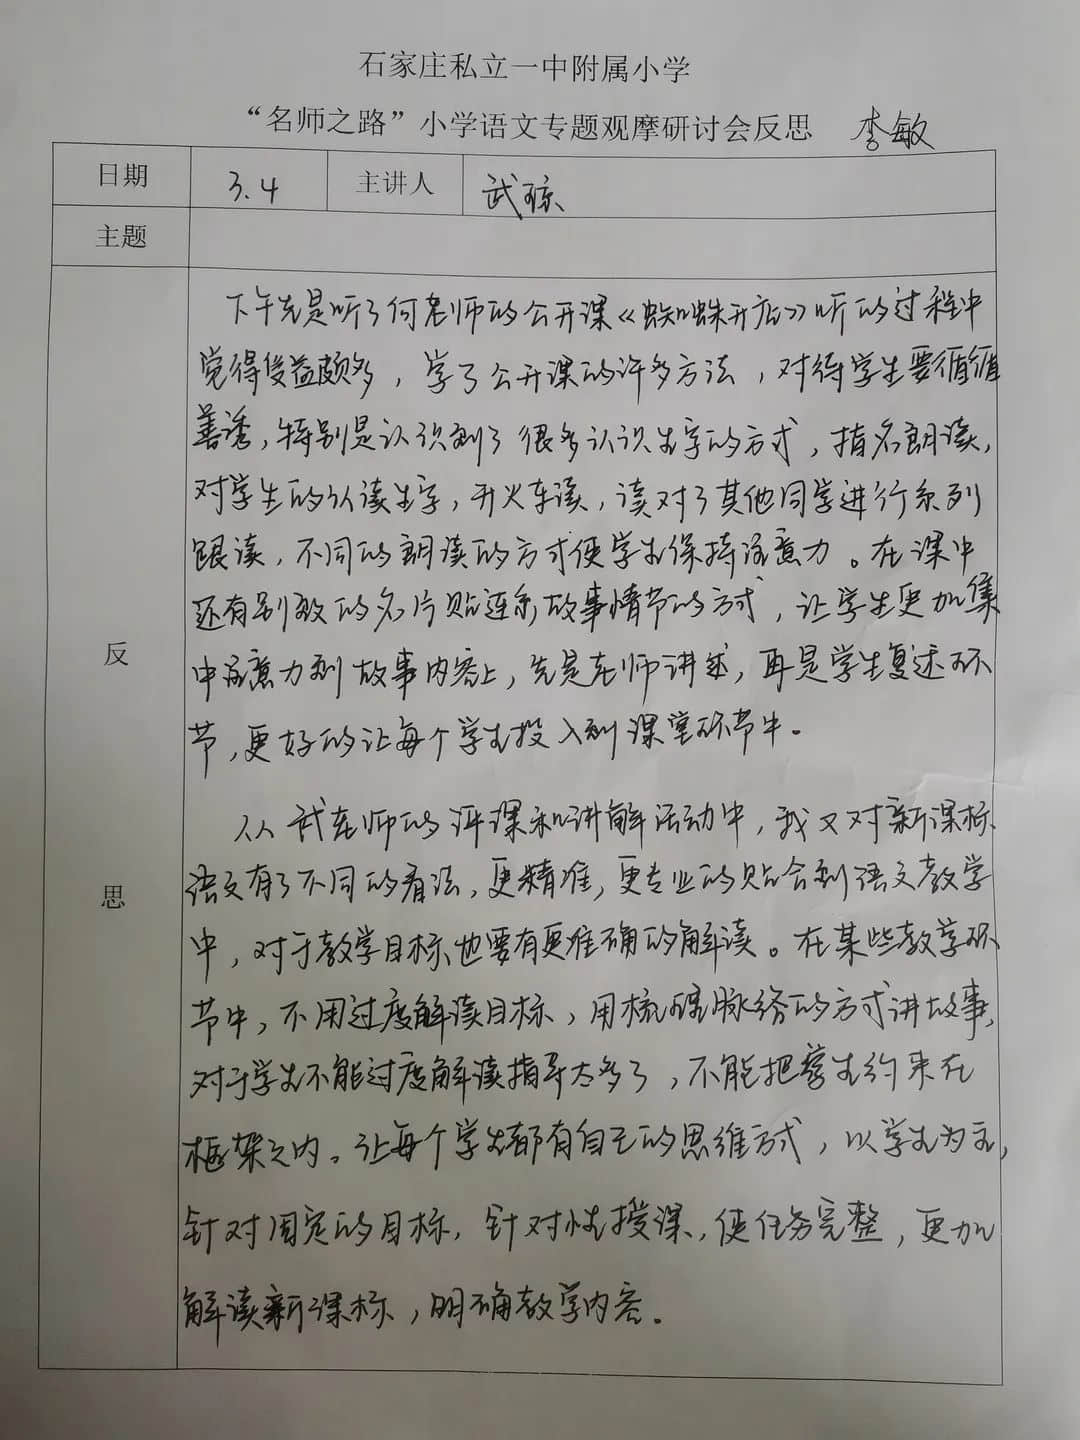 石家庄私立一中附属小学
“名师之路”小学语文专题观摩研讨会反思 李敏
日期 3.4 主讲人 武琼
主题
反思
下午先是听了何老师的公开课《蜘蛛开店》听的过程中
觉得受益颇多，学了公开课的许多方法，对待学生要循循
善诱，特别是认识到了很多认识生字的方式，指名朗读，
对学生的认读生字，开火车读，读对了其他同学进行系列
跟读，不同的朗读的方式使学生保持注意力。在课中
还有别致的名片贴连系故事情节的方式，让学生更加集
中注意力到故事内容上，先是老师讲述，再是学生复述环
节，更好的让每个学生投入到课堂环节中。
从武老师的评课和讲解活动中，我又对新课标
语文有了不同的看法，更精准，更专业的贴合到语文教学
中，对于教学目标也要有更准确的解读。在某些教学环
节中，不用过度解读目标，用梳理脉络的方式讲故事，
对于学生不能过度解读指导太多了，不能把学生约束在
框架之内。让每个学生都有自己的思维方式，以学生为主，
针对固定的目标，针对性授课，使任务完整，更加
解读新课标，明确教学内容。